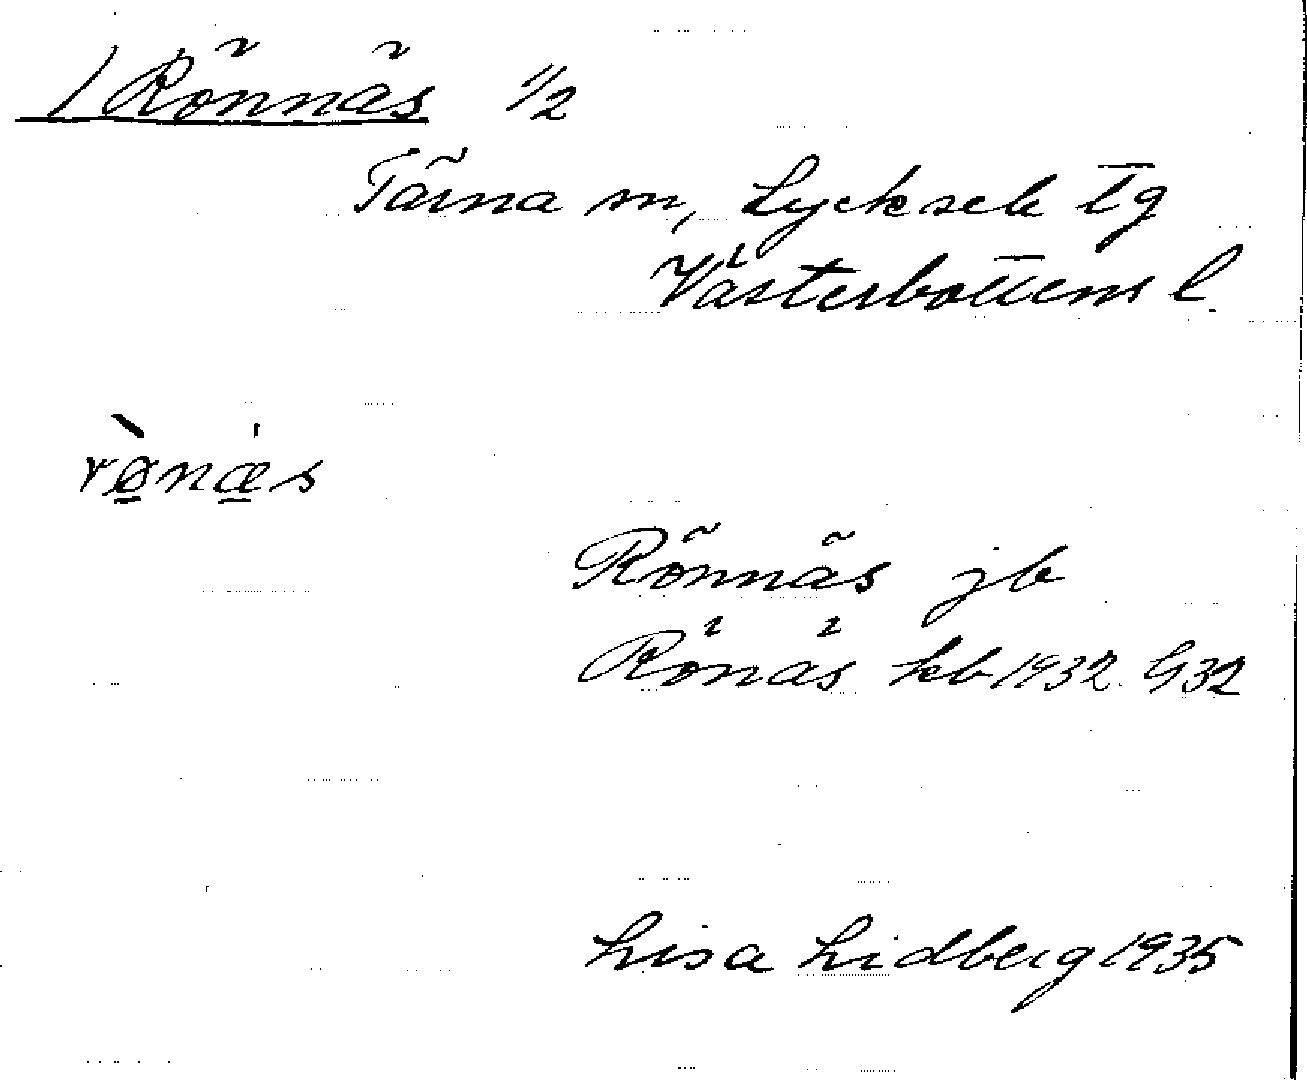 /Rönnäs 1/2
Tärna sn, Lycksele tg
Västerbottens l.
rø̀næ's
Rönnäs jb
Rönäs kb 1932 G32
Lisa Lidberg 1935